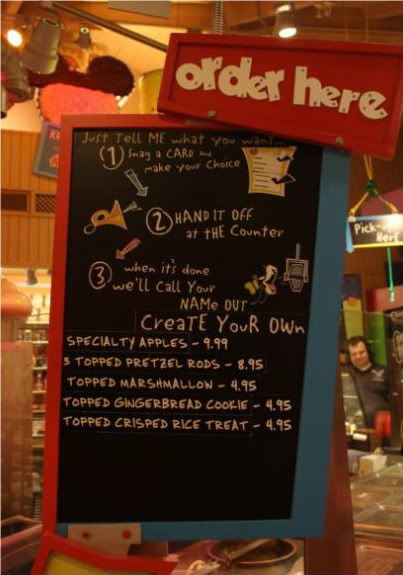 order here
Just Tell ME what you want...
1 Snag a CARD and
make your Choice
2 HAND IT OFF
at tHE Counter
3 when it's done
we'll CALL Your
NAMe OUT
CreaTE YouR OWn
SPECIALTY APPLES - 9.99
3 TOPPED PRETZEL RODS - 8.95
TOPPED MARSHMALLOW - 4.95
TOPPED GINGERBREAD COOKIE - 4.95
TOPPED CRISPED RICE TREAT - 4.95
Pick-
Here